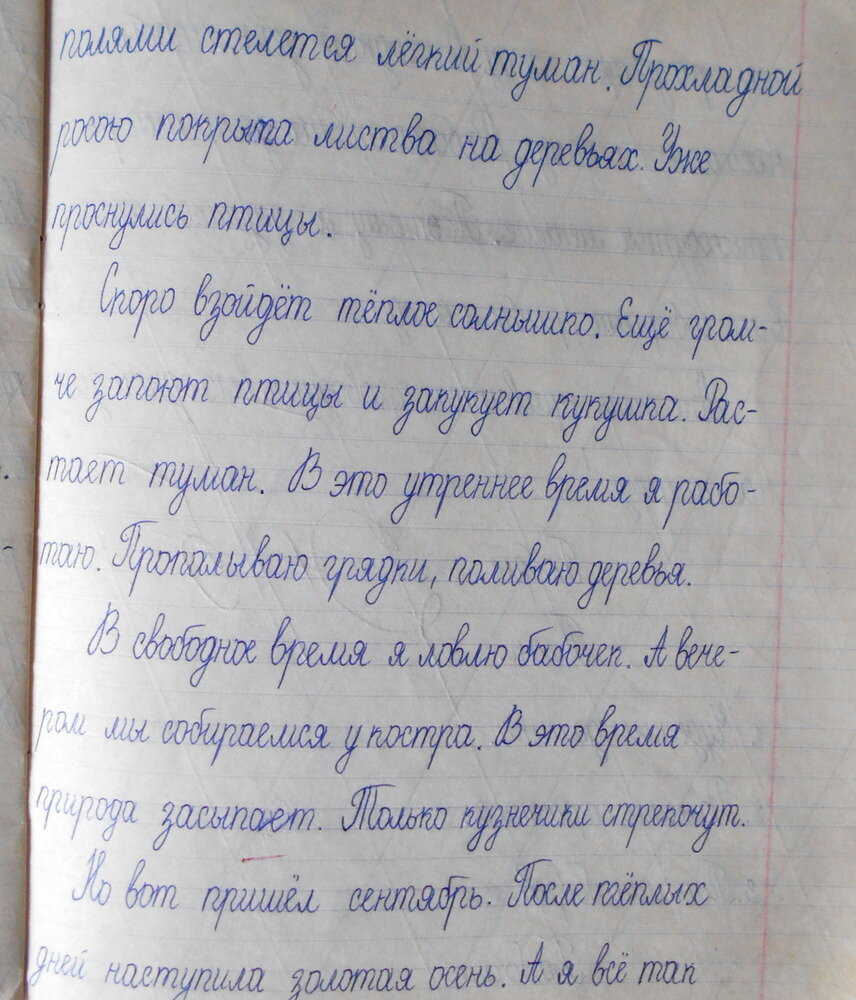 полями стелется лёгкий туман. Прохладной
росою покрыта листва на деревьях. Уже
проснулись птицы.
Скоро взойдёт тёплое солнышко. Ещё гром-
че запоют птицы и закукует кукушка. Рас-
тает туман. В это утреннее время я рабо-
таю. Пропалываю грядки, поливаю деревья.
В свободное время я ловлю бабочек. А вече-
ром мы собираемся у костра. В это время
природа засыпает. Только кузнечики стрекочут.
Но вот пришёл сентябрь. После тёплых
дней наступила золотая осень. А я всё так